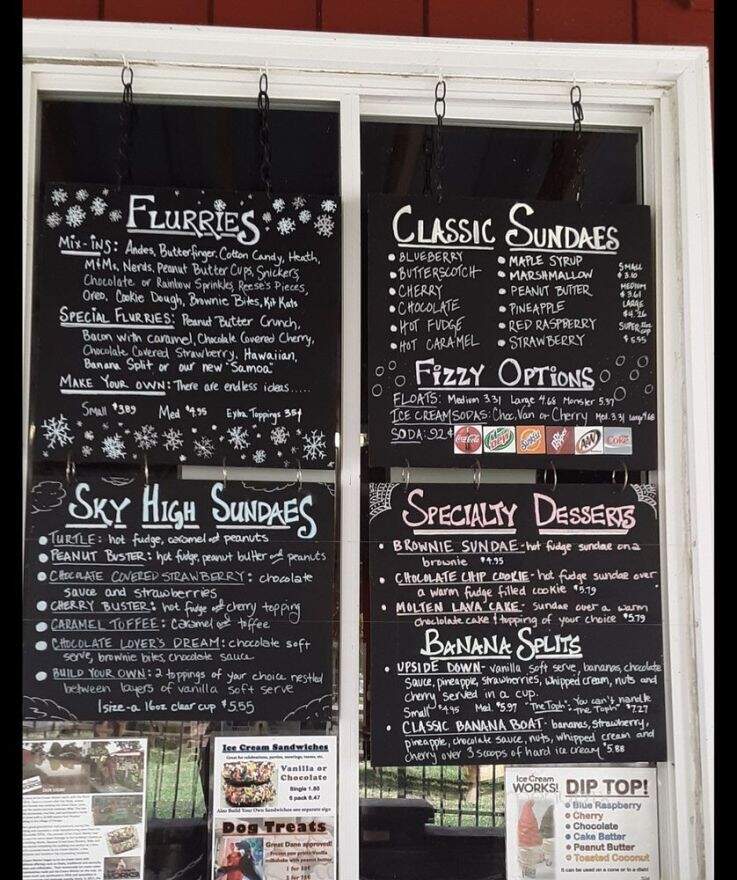 FLURRIES
MIX-INS: Andes, Butterfinger, Cotton Candy, Heath,
M&Ms, Nerds, Peanut Butter Cups, Snickers
Chocolate or Rainbow Sprinkles, Reese's Pieces,
Oreo, Cookie Dough, Brownie Bites, Kit Kats
SPECIAL FLURRIES: Peanut Butter Crunch,
Bacon with caramel, Chocolate Covered Cherry,
Chocolate Covered Strawberry, Hawaiian,
Banana Split or our new "Samoa"
MAKE YOUR OWN: There are endless ideas.....
Small $3.89 Med $4.95 Extra Toppings 35¢
CLASSIC SUNDAES
• BLUEBERRY
• BUTTERSCOTCH
• CHERRY
• CHOCOLATE
• HOT FUDGE
• HOT CARAMEL
• MAPLE SYRUP
• MARSHMALLOW
• PEANUT BUTTER
• PINEAPPLE
• RED RASPBERRY
• STRAWBERRY
SMALL
$3.10
MEDIUM
$3.61
LARGE
$4.26
SUPER
CUP
$5.55
FIZZY OPTIONS
FLOATS: Medium 3.31 Large 4.68 Monster 5.37
ICE CREAM SODAS: Choc, Van or Cherry Med. 3.31 Large 4.68
SODA: .92¢
Coca-Cola
Sunkist
A&W
Coke
SKY HIGH SUNDAES
• TURTLE: hot fudge, caramel and peanuts
• PEANUT BUSTER: hot fudge, peanut butter and peanuts
• CHOCOLATE COVERED STRAWBERRY: chocolate
sauce and strawberries
• CHERRY BUSTER: hot fudge and cherry topping
• CARAMEL TOFFEE: caramel and toffee
• CHOCOLATE LOVER'S DREAM: chocolate soft
serve, brownie bites, chocolate sauce
• BUILD YOUR OWN: 2 toppings of your choice nestled
between layers of vanilla soft serve
1 size-a 16oz clear cup $5.55
SPECIALTY DESSERTS
• BROWNIE SUNDAE - hot fudge sundae on a
brownie $4.95
• CHOCOLATE CHIP COOKIE - hot fudge sundae over
a warm fudge filled cookie $5.79
• MOLTEN LAVA CAKE - Sundae over a warm
choclolate cake & topping of your choice $5.79
BANANA SPLITS
• UPSIDE DOWN - vanilla soft serve, bananas, chocolate
sauce, pineapple, strawberries, whipped cream, nuts and
cherry served in a cup.
Small $4.95 Med. $5.97 "The Toph": You can't handle "The Toph" $7.27
• CLASSIC BANANA BOAT - bananas, strawberry,
pineapple, chocolate sauce, nuts, whipped cream and
cherry over 3 scoops of hard ice cream $5.88
Ice Cream Sandwiches
Great for celebrations, parties, meetings, teams, etc.
Vanilla or
Chocolate
Single 1.80
6 pack 8.47
Also Build Your Own Sandwiches see separate sign
Dog Treats
Great Dane approved!
Ice Cream
WORKS!
DIP TOP!
• Blue Raspberry
• Cherry
• Chocolate
• Cake Batter
• Peanut Butter
• Toasted Coconut
It can be used on a cone or in a dish!